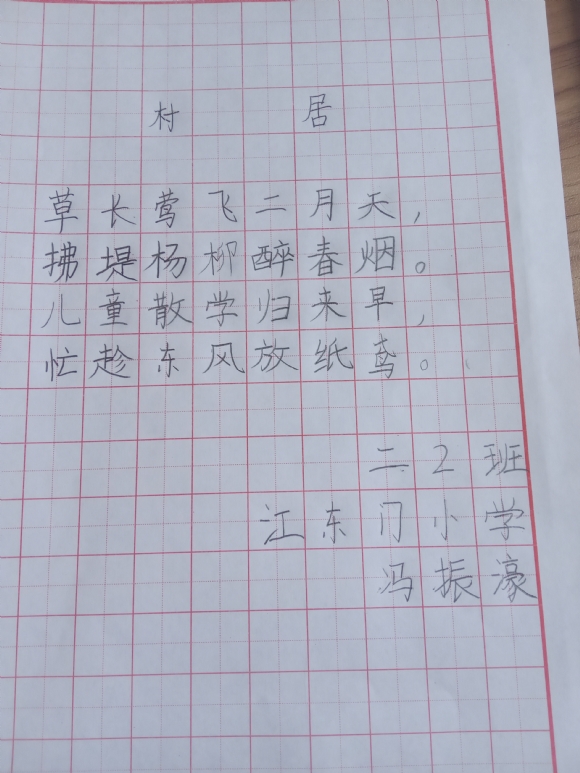 村居
草长莺飞二月天，
拂堤杨柳醉春烟。
儿童散学归来早，
忙趁东风放纸鸢。
二2班
江东门小学
冯振濠